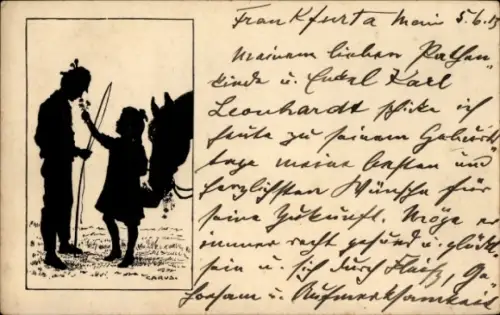 Frankfurt a Main 5.6.15
Meinem lieben Pathen
kinde u. Enkel Karl
Leonhardt schicke ich
heute zu seinem Geburts
tage meine besten und
herzlichsten Wünsche für
seine Zukunft. Möge er
immer recht gesund u. glückl.
sein u. sich durch Fleiß, Ge-
horsam u. Aufmerksamkeit
CARUS.